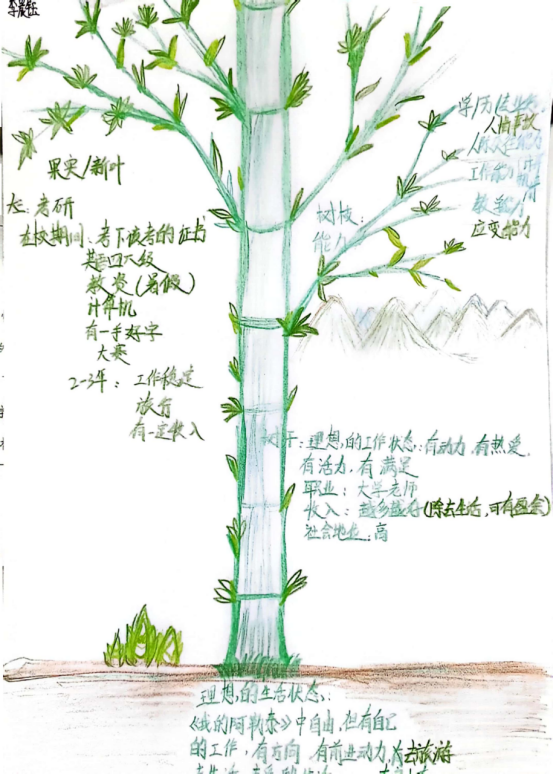 果实/新叶
大三:考研
在校期间:考下该考的证书
英语四六级
教资(暑假)
计算机
有一手好字
大赛
2-3年:工作稳定
旅行
有一定收入
树枝:
能力
学历
人情世故
工作能力
教学能力
应变能力
树干:理想的工作状态:有动力,有热爱,
有活力,有满足
职业:大学老师
收入:越多越好(除去生活,可有盈余)
社会地位:高
理想的生活状态:
《我的阿勒泰》中自由,但有自己
的工作,有方向,有前进动力,去旅游